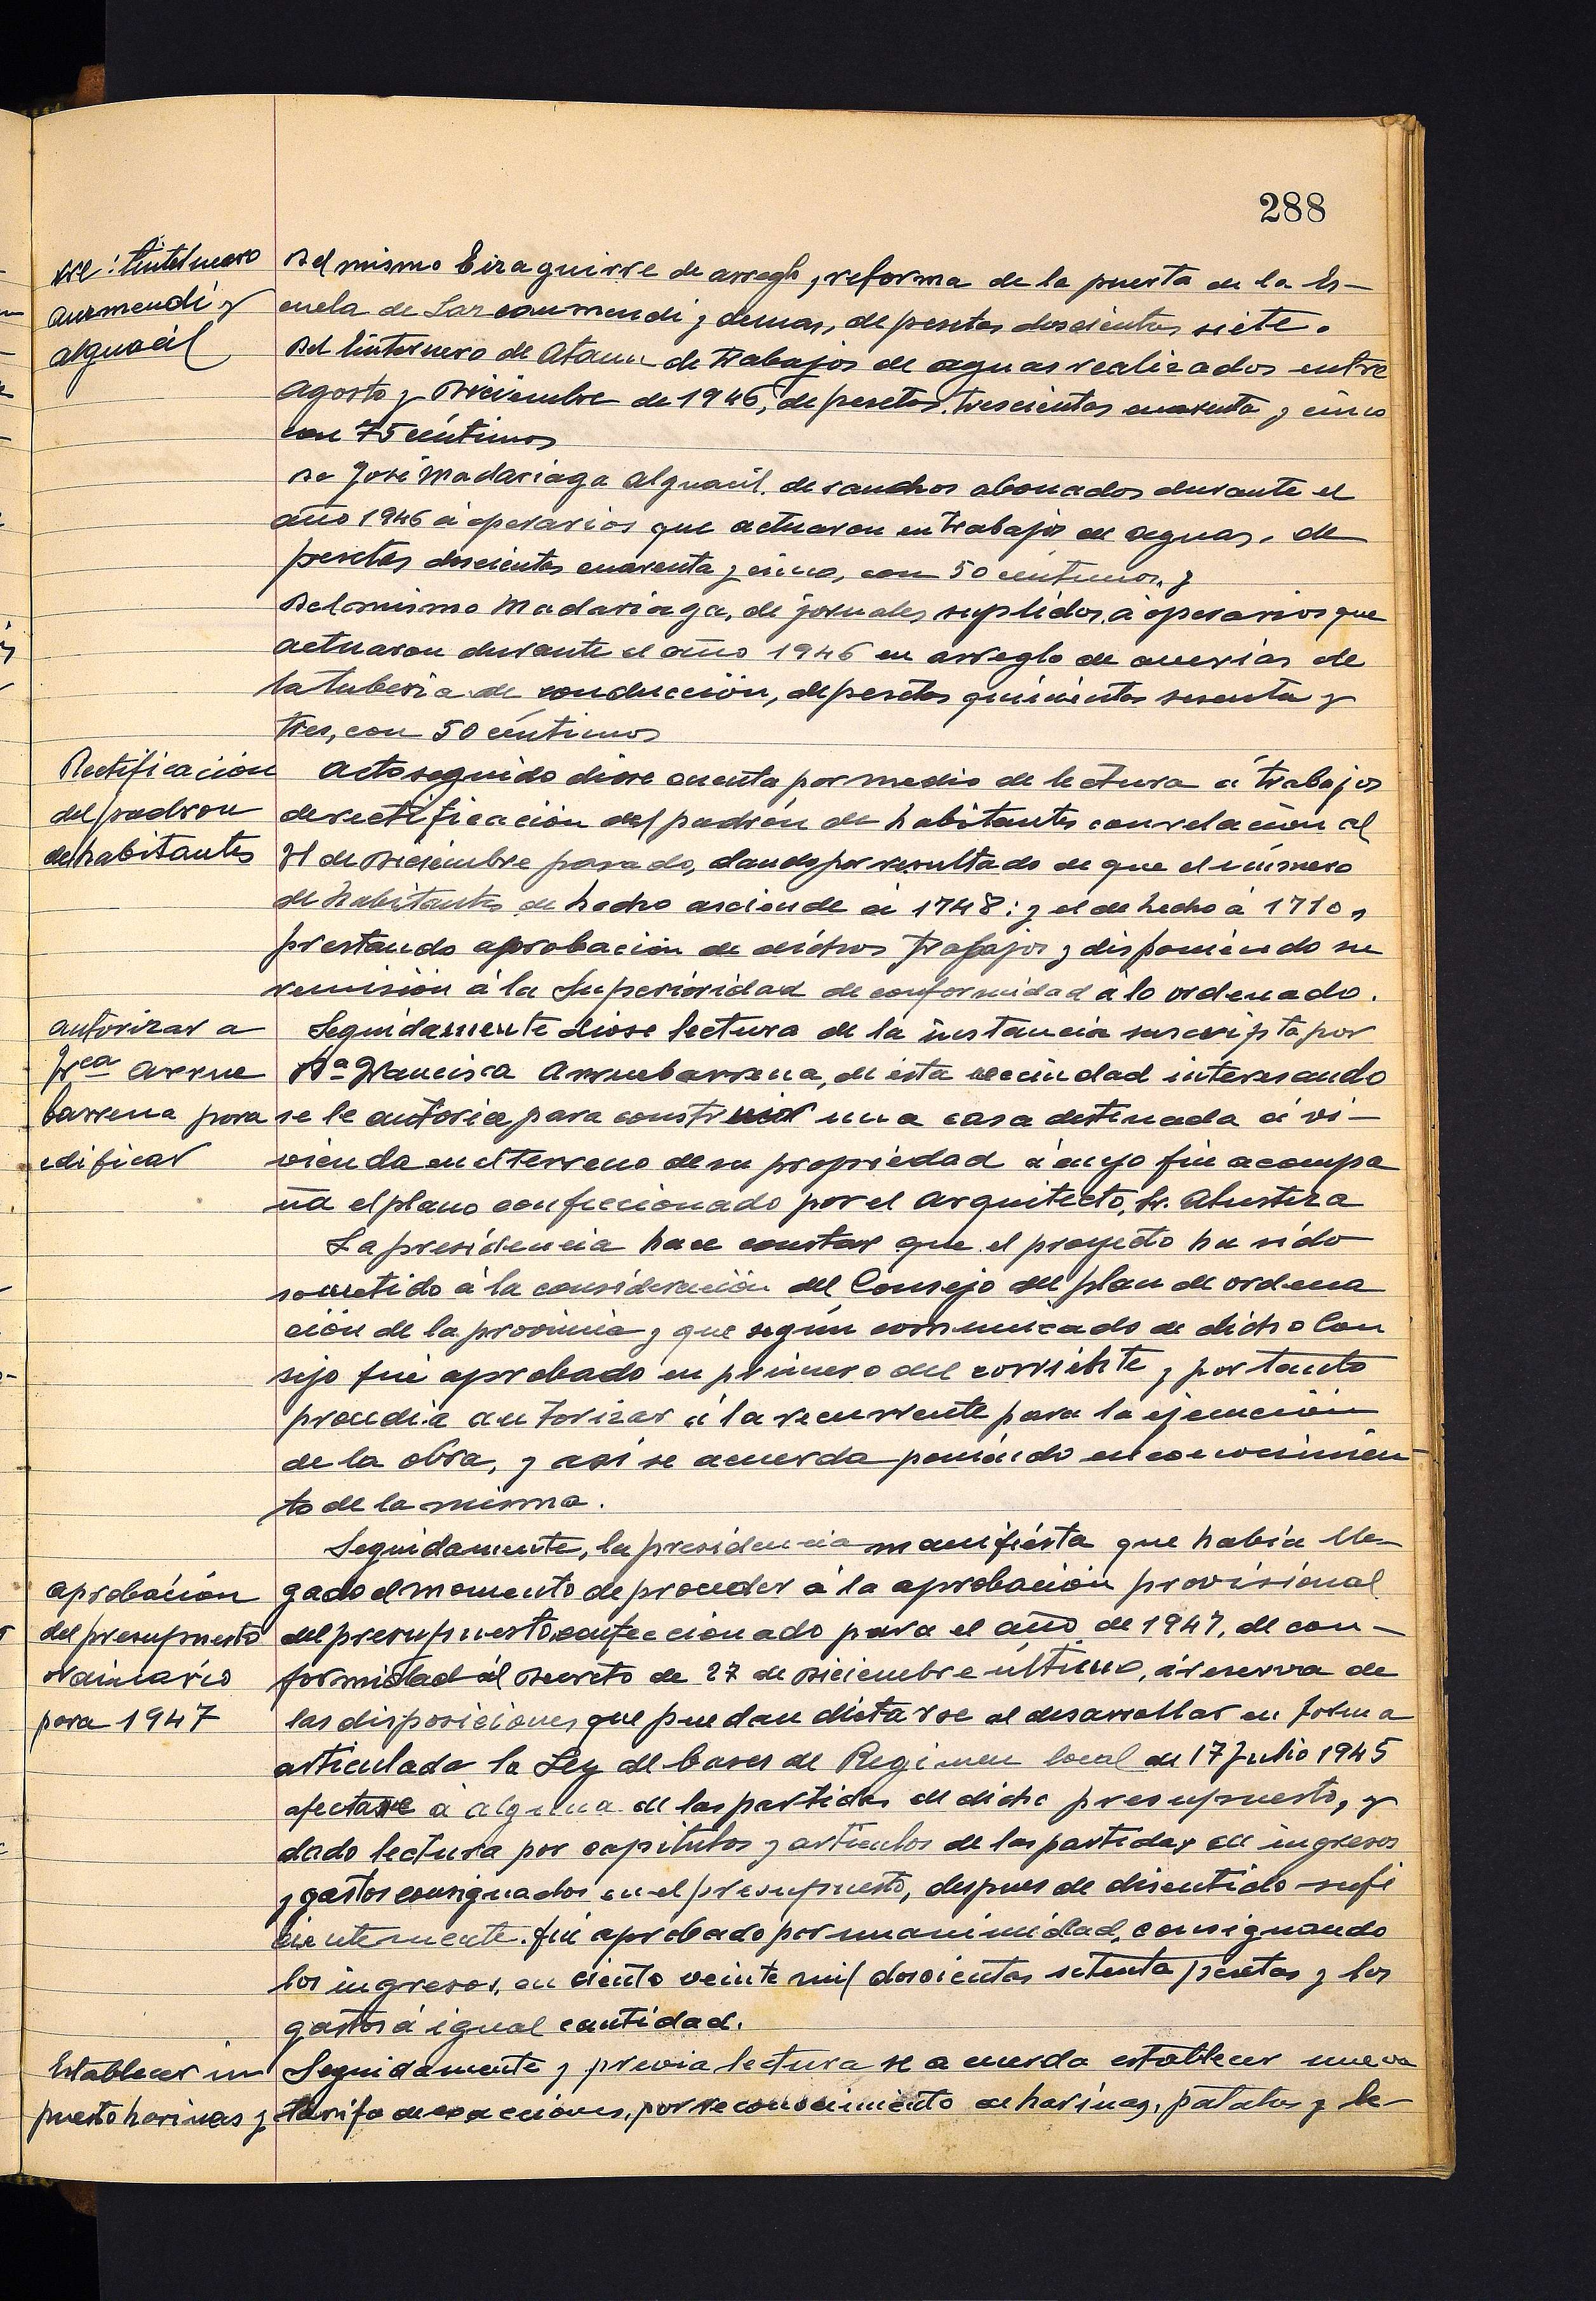 288
rre: tintelnero
Aurmendi y
alguacil
Del mismo Eizaguirre de arreglo y reforma de la puerta de la Es-
cuela de Larcaumendi y demas, de pesetas doscientas siete.
Del linternero de Ataun de trabajos de aguas realizados entre
Agosto y Diciembre de 1946, de pesetas trescientas cuarenta y cinco
con 75 céntimos
De José Madariaga Alguacil de ranchos abonados durante el
año 1946 á operarios que actuaron en trabajos de aguas, de
pesetas doscientas cuarenta y cinco, con 50 centimos, y
Del mismo Madariaga, de jornales suplidos á operarios que
actuaron durante el año 1946 en arreglo de averías de
la tuberia de conducción, de pesetas quinientas sesenta y
tres, con 50 céntimos
Rectificación
del padron
de habitantes
Acto seguido diose cuenta por medio de lectura á trabajos
de rectificación del padrón de habitantes con relación al
31 de Diciembre pasado, dando por resultado de que el número
de habitantes de hecho asciende á 1748: y el de hecho á 1710,
prestando aprobación de dichos trabajos y disponiendo su
remisión á la Superioridad de conformidad á lo ordenado.
autorizar a
Frca Arrue
barrena para
edificar
Seguidamente diose lectura de la instancia suscripta por
Dª Francisca Arruebarrena, de esta vecindad interesando
se le autorice para construir una casa destinada á vi-
vienda en el terreno de su propriedad á cuyo fin acompa
ña el plano confeccionado por el Arquitecto, Sr. Alustiza
La presidencia hace constar que el proyecto ha sido
sometido á la consideración del Consejo del plan de ordena
ción de la provincia y que según comunicado de dicho Con
sejo fué aprobado en primero del corriente y por tanto
procedia autorizar á la recurrente para la ejecución
de la obra, y asi se acuerda poniéndo en conocimien-
to de la misma.
Seguidamente, la presidencia manifiesta que habia lle-
aprobación
del presupuesto
ordinario
para 1947
gado el momento de proceder á la aprobación provisional
del presupuesto confeccionado para el año de 1947, de con-
formidad al Decreto de 27 de Diciembre último, á reserva de
las disposiciones que puedan dictarse al desarrollar en forma
articulada la Ley de bases de Regimen local de 17 Julio 1945
afectase á alguna de las partidas de dicho presupuesto, y
dado lectura por capitulos y articulos de las partidas de ingresos
y gastos consignados en el presupuesto, despues de discutido sufi
cientemente fué aprobado por unanimidad, consignando
los ingresos, en ciento veinte mil doscientas setenta pesetas y los
gastos á igual cantidad.
Establecer im
puesto harinas y
Seguidamente y previa lectura se acuerda establecer nueva
tarifa de exacciones, por reconocimiento de harinas, patatas y le-